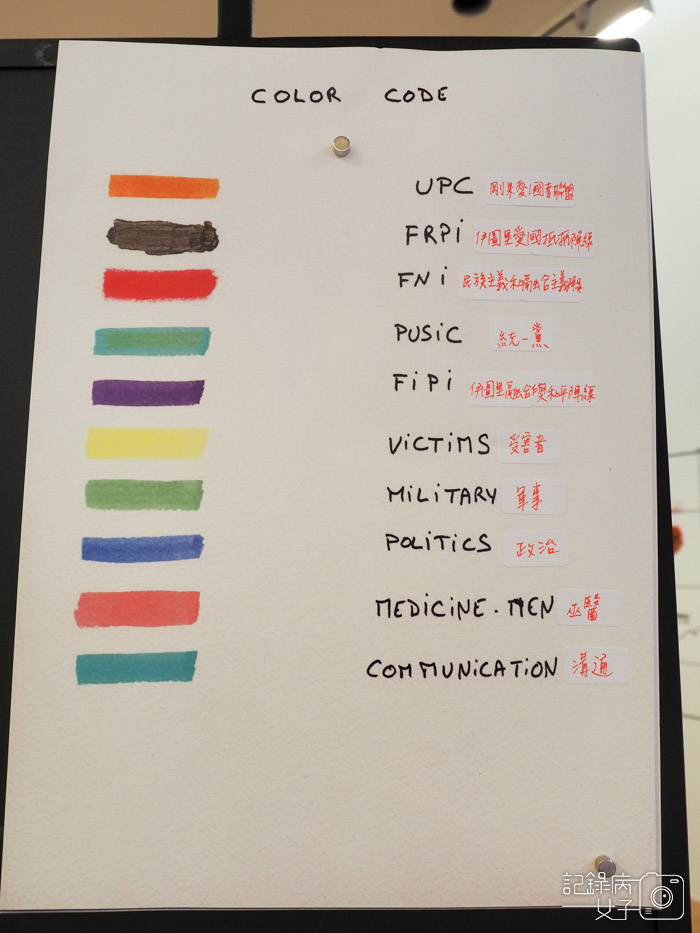 COLOR CODE
UPC 剛果愛國者聯盟
FRPi 伊圖里愛國抵抗陣線
FNi 民族主義和融合主義陣
PUSiC 統一黨
FiPi 伊圖里融合與和平陣線
ViCTiMS 受害者
MiLiTARY 軍事
POLiTiCS 政治
MEDiCiNE.MEN 巫醫
COMMUNiCATiON 溝通
記錄病
女子